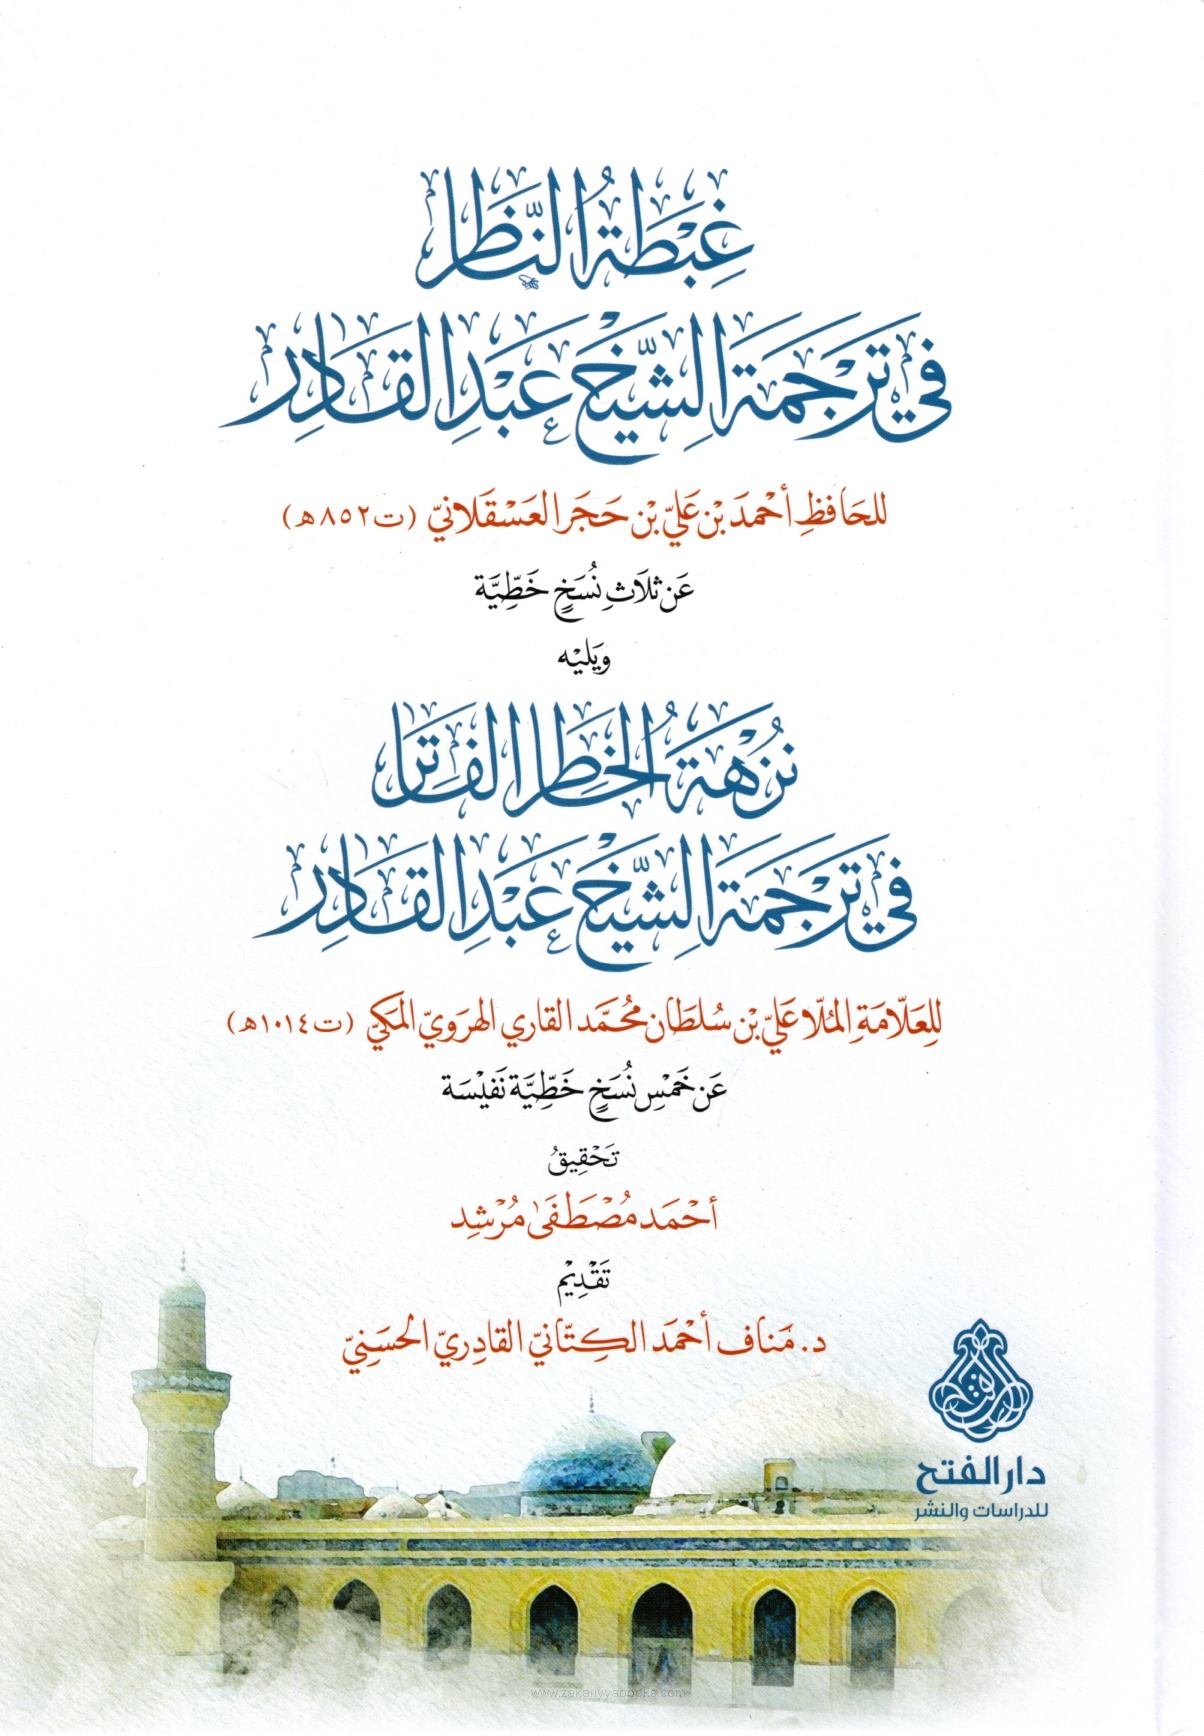 غِبْطَةُ النَّاظِر
في تَرجَمَةِ الشَّيْخ عَبْدِ القَادِر
للحَافظِ أحْمَدَ بْن عَليّ بْن حَجَر العَسْقَلانيّ (ت ٨٥٢هـ)
عَن ثلاَثِ نُسَخٍ خَطِّيَّة
ويَليْه
نُزْهَةُ الخَاطِر الفَاتِر
في تَرْجَمَةِ الشَّيْخ عَبْدِ القَادِر
لِلعَلّامَةِ المُلّا عَليّ بْن سُلطَان محُمَّد القاري الهرَويّ المَكيّ (ت ١٠١٤هـ)
عَن خَمْسِ نُسَخٍ خَطِّيَّة نَفيْسَة
تَحْقِيقُ
أحْمَد مُصْطَفَىٰ مُرْشِد
تَقْدِيْم
د. مَناف أحْمَد الكِتّانيّ القادِريّ الحسَنِيّ
الفتح
دار الفتح
للدراسات والنشر
www.zakariyyabooks.com